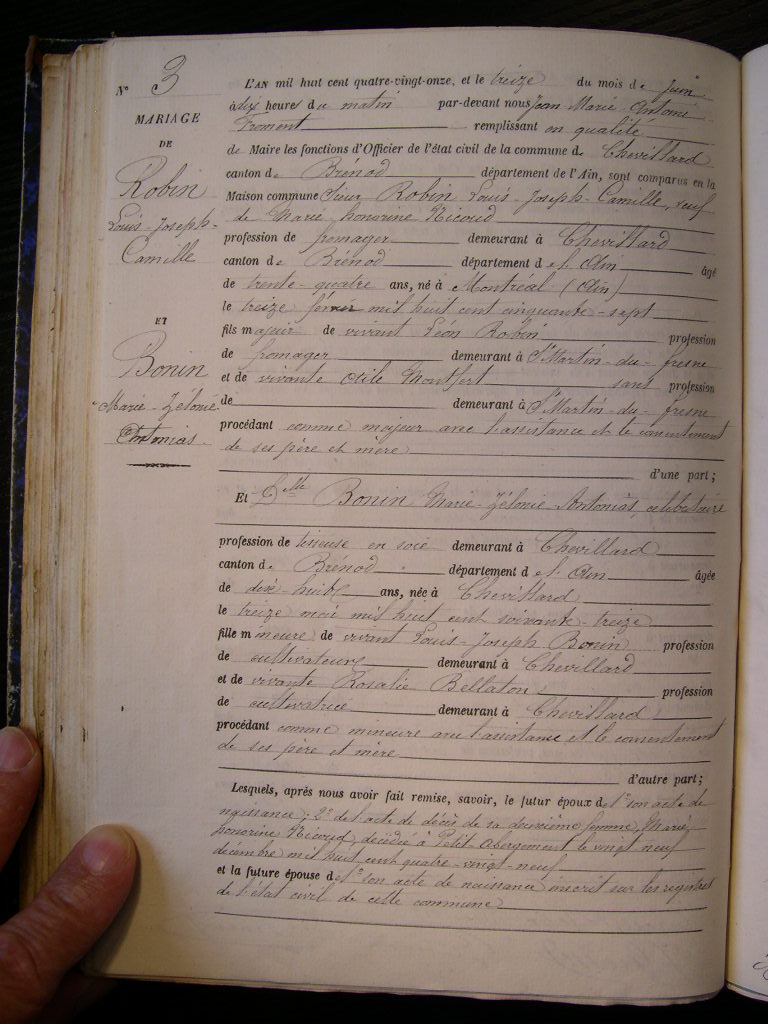 N° 3
MARIAGE
DE
Robin
Louis-Joseph-
Camille
ET
Bonin
Marie-Zélonie
Antonias
L'AN mil huit cent quatre-vingt-onze, et le treize du mois de Juin
à dix heures du matin par-devant nous Jean Marie Antoine
Froment remplissant en qualité
de Maire les fonctions d'Officier de l'état civil de la commune de Chevillard
canton de Brénod département de l'Ain, sont comparus en la
Maison commune Sieur Robin Louis-Joseph-Camille, veuf
de Marie honorine Ricoud
profession de fromager demeurant à Chevillard
canton de Brénod département de l'Ain âgé
de trente-quatre ans, né à Montréal (Ain)
le treize février mil huit cent cinquante-sept
fils majeur de vivant Léon Robin profession
de fromager demeurant à St Martin-du-fresne
et de vivante Odile Montfort sans profession
de demeurant à St Martin-du-fresne
procédant comme majeur avec l'assistance et le consentement
de ses père et mère
d'une part;
Et Delle Bonin Marie-Zélonie Antonias, célibataire
profession de tisseuse en soie demeurant à Chevillard
canton de Brénod département de l'Ain âgée
de dix-huit ans, née à Chevillard
le treize mai mil huit cent soixante-treize
fille mineure de vivant Louis-Joseph Bonin profession
de cultivateur demeurant à Chevillard
et de vivante Rosalie Bellaton profession
de cultivatrice demeurant à Chevillard
procédant comme mineure avec l'assistance et le consentement
de ses père et mère
d'autre part;
Lesquels, après nous avoir fait remise, savoir, le futur époux de 1° son acte de
naissance; 2° de l'acte de décès de sa deuxième femme, Marie
honorine Ricoud, décédée à Petit-Abergement le vingt neuf
décembre mil huit cent quatre-vingt-neuf
et la future épouse de 1° son acte de naissance inscrit sur les registres
de l'état civil de cette commune